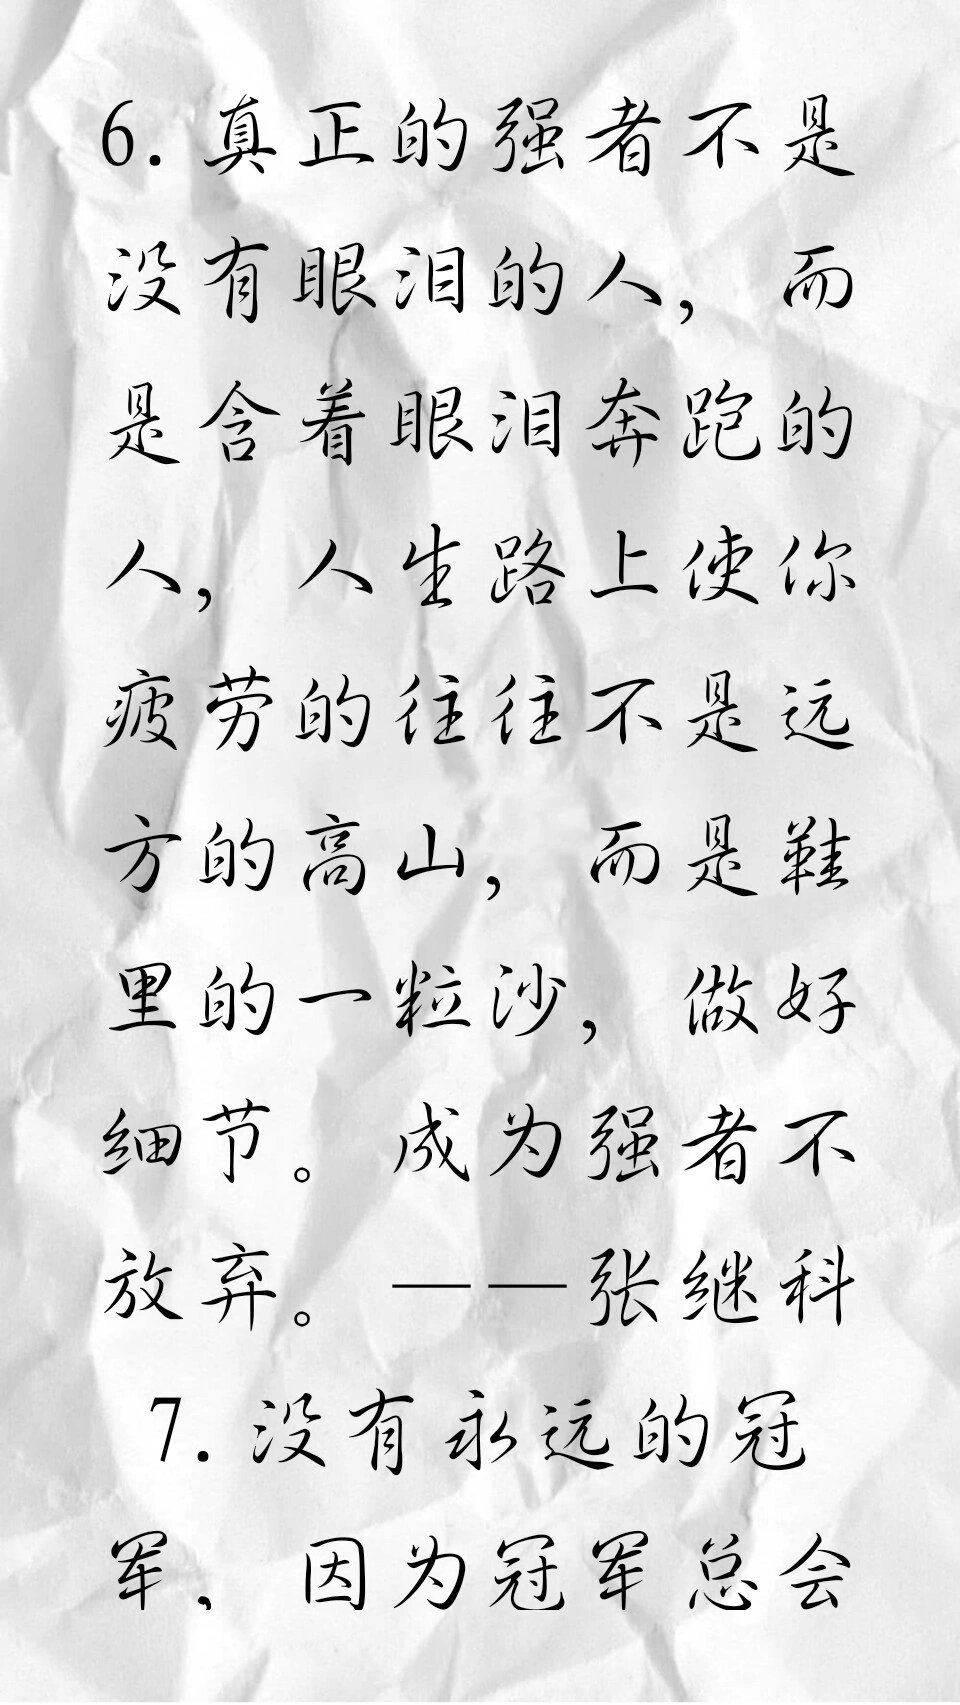 6. 真正的强者不是
没有眼泪的人，而
是含着眼泪奔跑的
人，人生路上使你
疲劳的往往不是远
方的高山，而是鞋
里的一粒沙，做好
细节。成为强者不
放弃。——张继科
7. 没有永远的冠
军，因为冠军总会